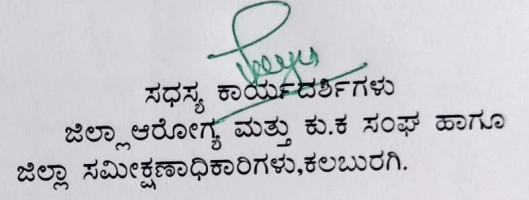 ಸಧಸ್ಯ ಕಾರ್ಯದರ್ಶಿಗಳು
ಜಿಲ್ಲಾ ಆರೋಗ್ಯ ಮತ್ತು ಕು.ಕ ಸಂಘ ಹಾಗೂ
ಜಿಲ್ಲಾ ಸಮೀಕ್ಷಣಾಧಿಕಾರಿಗಳು,ಕಲಬುರಗಿ.